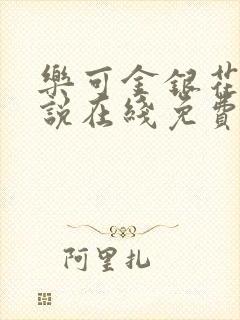 樂可金銀花
說在綫免費
阿里扎